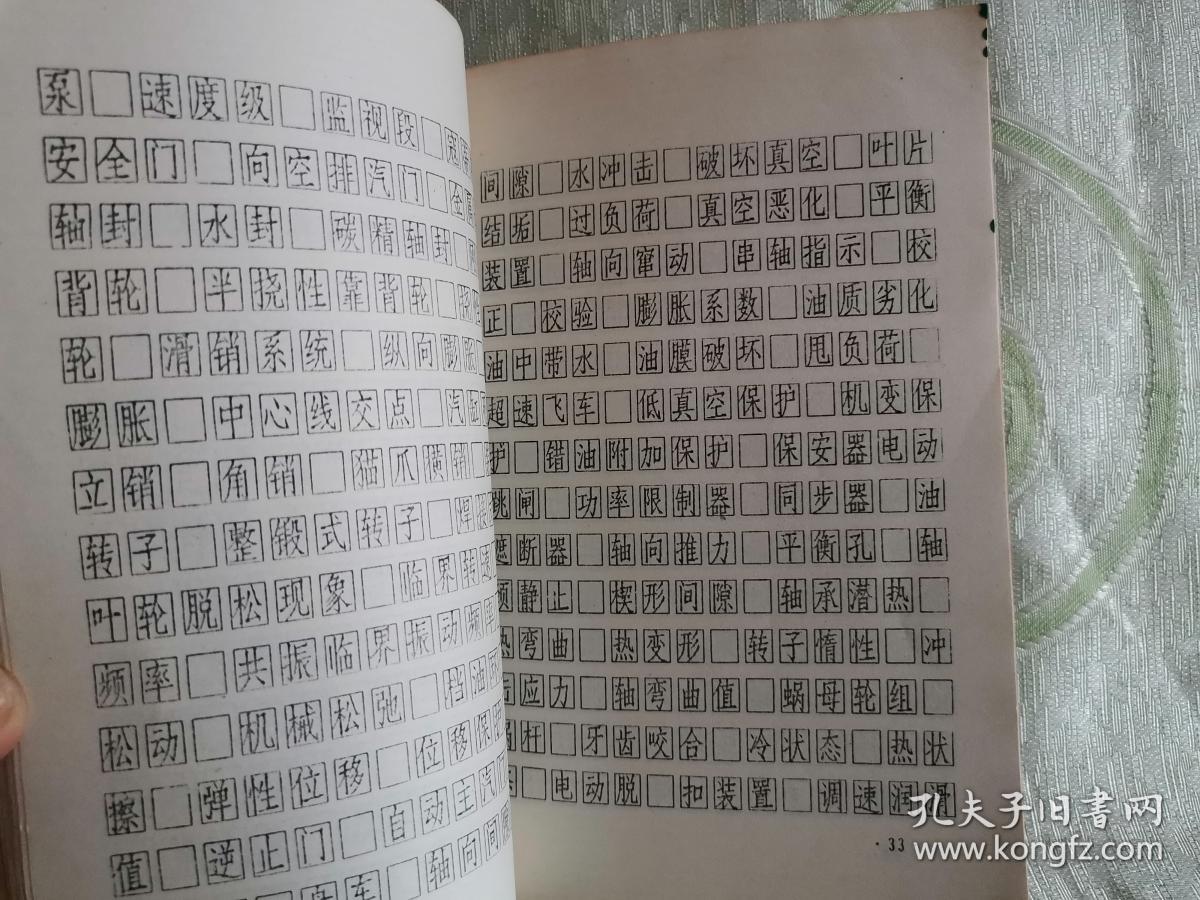 泵 速度级 监视段
安全门 向空排汽门 金属
轴封 水封 碳精轴封
背轮 半挠性靠背轮
轮 滑销系统 纵向膨胀
膨胀 中心线交点 汽缸
立销 角销 猫爪横销
转子 整锻式转子 焊接
叶轮脱松现象 临界转速
频率 共振临界振动频
松动 机械松弛 挡油
擦 弹性位移 位移保
值 逆止门 自动主汽门
盘车 轴向间
间隙 水冲击 破坏真空 叶片
结垢 过负荷 真空恶化 平衡
装置 轴向窜动 串轴指示 校
正 校验 膨胀系数 油质劣化
油中带水 油膜破坏 甩负荷
超速飞车 低真空保护 机变保
护 错油附加保护 保安器电动
跳闸 功率限制器 同步器 油
遮断器 轴向推力 平衡孔 轴
颈静止 楔形间隙 轴承潜热
热弯曲 热变形 转子惰性 冲
应力 轴弯曲值 蜗母轮组
蜗杆 牙齿咬合 冷状态 热状
态 电动脱 扣装置 调速润滑
·33
孔夫子旧书网
www.kongfz.com